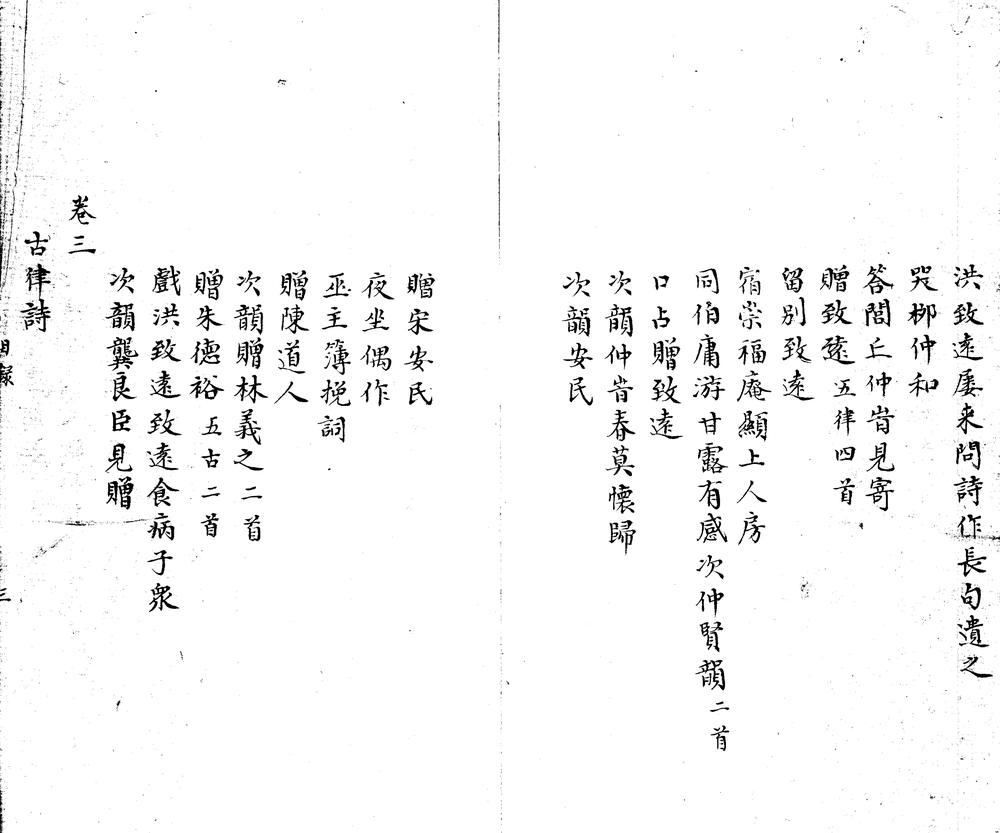 洪致遠屢来問詩作長句遺之
哭柳仲和
答閭丘仲訔見寄
贈致遠 五律四首
留別致遠
宿崇福庵顯上人房
同伯庸游甘露有感次仲賢韻 二首
口占贈致遠
次韻仲訔春莫懷歸
次韻安民
贈宋安民
夜坐偶作
巫主簿挽詞
贈陳道人
次韻贈林義之二首
贈朱德裕 五古二首
戲洪致遠致遠食病子衆
次韻龔良臣見贈
卷三
古律詩
目錄
三